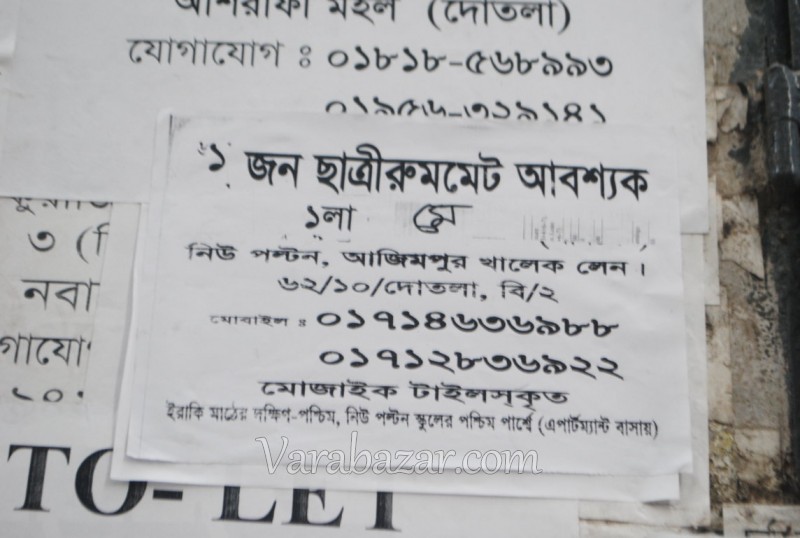 আশরাফী মহল (দোতলা)
যোগাযোগ : ০১৮১৮-৫৬৮৯৯৩
১ জন ছাত্রীরুমমেট আবশ্যক
১লা মে
নিউ পল্টন, আজিমপুর খালেক লেন।
৬২/১০/দোতলা, বি/২
মোবাইল : ০১৭১৪৬৩৬৯৮৮
০১৭১২৮৩৬৯২২
মোজাইক টাইলস্কৃত
ইরাকি মাঠের দক্ষিণ-পশ্চিম, নিউ পল্টন স্কুলের পশ্চিম পার্শ্বে (এপার্টম্যান্ট বাসায়)
৩ (
নবা
গাযো
Varabazar.com
TO-LET